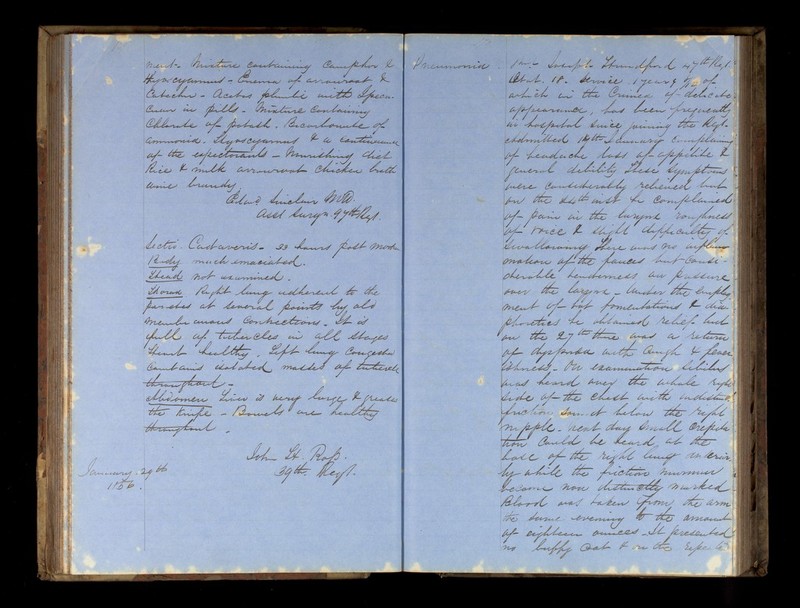 ment - Mixture containing Camphor &
Hyoscyamus - Enema of arrowroot &
Catechu - Acetas plumbi with Ipeca-
cuan in pills - Mixture containing
Chlorate of potash. Bicarbonate of
ammonia. Hyoscyamus & a continuance
of the expectorants - Nourishing diet
Rice & milk arrowroot chicken broth
wine brandy
Sinclair M.D.
Asst Surgn 97th Regt.
Sectio Cadaveris - 33 hours post mortem
Body much emaciated.
Head not examined.
Thorax Right lung adherent to the
parietes at several points by old
membranous connections. It is
full of tubercles in all stages
Heart healthy. Left lung congested
contains isolated masses of tubercle
throughout -
Abdomen Liver is very large & greases
the knife - Bowels are healthy
throughout.
John
39th Regt.
January 29th
1856.
Pneumonia
Joseph 47th Regt.
Ætat. 18. Service 1 year & of
which in the Crimea of delicate
appearance, has been frequently
in hospital since joining the Regt.
Admitted 18th January complaining
of headache loss of appetite &
general debility These symptoms
were considerably relieved but
on the 24th inst he complained
of pain in the larynx roughness
of voice & slight difficulty of
swallowing There was no inflam-
mation of the fauces but consi-
derable tenderness on pressure
over the larynx - Under the employ-
ment of hot fomentations & dia-
phoretics he obtained relief but
on the 27th there was a return
of dyspnoea with cough &
On examination sibilus
was heard over the whole right
side of the chest with indistinct
friction sound below the right
nipple. next day small crepita-
tion could be heard at the
base of the right lung
by while the friction murmur
became more distinctly marked
Blood was taken from the arm
the same evening to the amount
of eighteen ounces - It presented
no buffy coat & on the